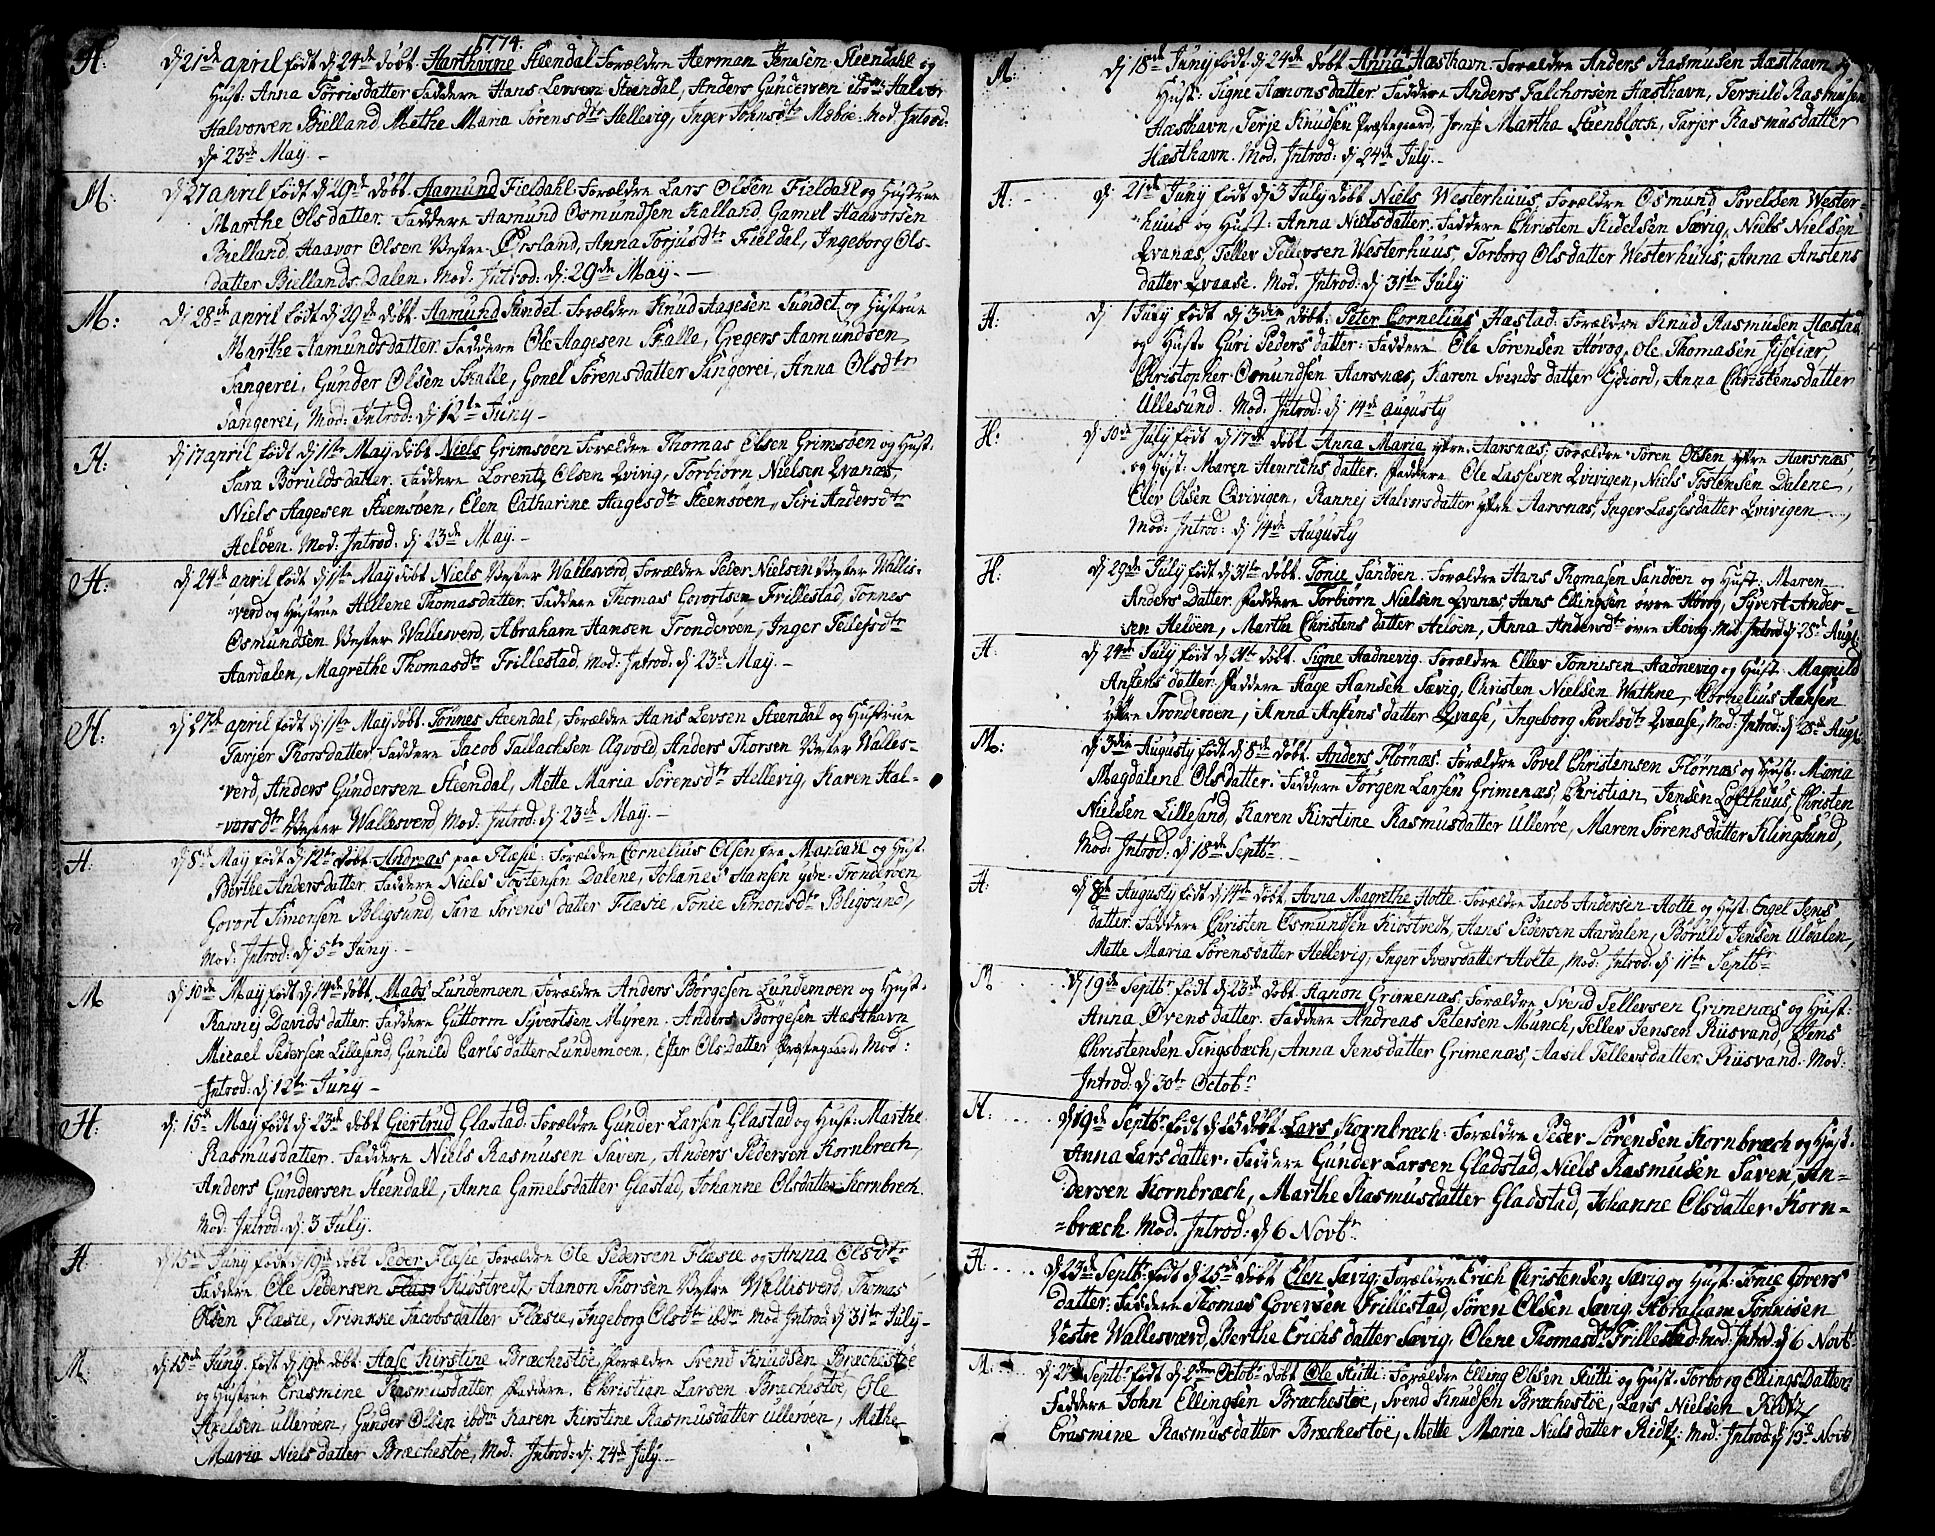 1774.
H. dj 21de april født dj 24de døbt. Harthvine Steendal Forældre Herman Jensen Steendahl og
Hust: Anna Torrisdatter Faddere Hans Levsen Steendal, Anders Gundersen ibdm Halvor
Halvorsen Bielland Methe Maria Sørensdtr Hellevig, Inger Johnsdtr Mebøe. Mod. Introd:
dj 23de May. -
M: dj 27 april født dj 29de døbt. Aamund Fieldahl. Forældre Lars Olsen Fieldahl og Hustrue
Marthe Olsdatter. Faddere Aamund Osmundsen Kalland, Gamel Haavorsen
Bielland, Haavor Olsen Vestre Øersland, Anna Torjusdtr Fieldal, Ingeborg Ols-
datter Biellands Dalen. Mod. Introd: dj. 29de May. -
M: dj 28de april født dj 29de døbt. Aamund Sundet. Forældre Knud Aagesen Sundet og Hustrue
Marthe Aamundsdatter. Faddere Ole Aagesen Skalle, Gregers Aamundsen
Sangerei, Gunder Olsen Skalle, Gonel Sørensdatter Sangerei, Anna Olsdtr
Sangerei, Mod: Introd: dj 12te Juny -
H: dj 17 april født dj 1ste May døbt Niels Grimsøen Forældre Thomas Olsen Grimsøen og Hust.
Sara Børuldsdatter. Faddere Lorentz Olsen Qvivig, Torbiørn Nielsen Qvanæs,
Niels Aagesen Steensøen, Elen Catharine Aagesdtr Steensøen, Siri Andersdtr
Heløen. Mod: Introd: dj 23de May. -
H. dj 24de april født dj 1ste May døbt Niels Vestre Wallesverd, Forældre Peder Nielsen Vestre Wallis-
verd og Hustrue Hellene Thomasdatter. Faddere Thomas Govertsen Frillestad, Tønnes
Osmundsen Vestre Wallesverd, Abraham Hansen Tronderøen, Inger Tellefsdtr
Aardalen, Magrethe Thomasdtr Frillestad. Mod. Introd: dj 23de May. -
H: dj 27de april født dj 1ste May døbt. Tønnes Steendal, Forældre Hans Levsen Steendal og Hustrue
Tarjer Thorsdatter, Faddere Jacob Tallachsen Agvold, Anders Thorsen Vestre Walles-
verd, Anders Gundersen Steendal, Mette Maria Sørensdtr Hellevig, Karen Hal-
vorsdtr Vestre Wallesverd Mod. Introd: dj. 23de May. -
H: dj 8de May født dj 12te døbt. Andreas paa Flæsie: Forældre Cornelius Olsen fra Mandal og Hust.
Berthe Andersdatter. Faddere Niels Tostensen Dalene, Johanes Hansen ydre Tronderøen,
Govert Simonsen Bligsund, Sara Sørens datter Flæsie, Tonie Simonsdtr Bligsund,
Mod: Introd: dj 5te Juny. -
M dj 10de May født dj 14de døbt, Mads Lundemoen Forældre Anders Børgesen Lundemoen og Hust.
Rannej Davids datter. Faddere Guttorm Syvertsen Myren. Anders Børgesen Hæsthavn
Micael Pedersen Lillesand, Gunild Carls datter Lundemoen, Ester Olsdatter Præstegaard, Mod:
Introd: dj 12te Juny -
H: dj: 15de May født dj. 23de døbt Giertrud Glastad. Forældre Gunder Larsen Glastad og Hust: Marthe
Rasmusdatter. Faddere Niels Rasmusen Saven, Anders Pedersen Kornbrech,
Anders Gundersen Steendall, Anna Gamelsdatter Glastad, Johanne Olsdatter Kornbrech.
Mod: Introd: dj. 3 July.
H. dj 15de Juny føde dj 19de døbt. Peder Flæsie, Forældre Ole Pedersen Flæsie og Anna Olsdtr
Faddere Ole Pedersen Kiøstvedt, Aanon Thorsen Vestre Wallisverd, Thomas
Olsen Flæsie, Trinnke Jacobsdatter Flæsie, Ingeborg Olsdtr ibdm Mod Introd dj 31te July -
M. dj 15de Juny. født dj. 19de døbt. Aase Kirstine Bræchestøe, Forældre Svend Knudsen Bræchestøe
og Hustrue Erasmine Rasmusdatter. Faddere. Christian Larsen Bræchestøe, Ole
Axelsen ullerøen, Gunder Olsen ibdm Karen Kirstine Rasmusdatter ullerøen, Methe
Maria Niels datter Bræchestøe, Mod. Introd: dj. 24de July. -
1774.
M. dj 18de Juny født dj 24de døbt Anna Hæsthavn. Forældre Anders Rasmusen Hæsthavn og
Hust: Signe Aanonsdatter Faddere Anders Falchorsen Hæsthavn, Terkild Rasmusen
Hæsthavn, Terje Knudsen Præstegaard, Jomf Martha Steenblock, Tarjer Rasmusdatter
Hæsthavn. Mod. Introd: dj 24de July. -
H: - dj: 21de Juny født dj 3 July døbt Niels Westerhuus, Forældre Osmund Povelsen Wester-
huus og Hust: Anna Nielsdatter. Faddere Christen Kidelsen Sævig, Niels Nielsen
Qvanæs, Tellev Tellevsen Westerhuus, Torborg Olsdatter Westerhuus, Anna Anstens
datter Qvaase. Mod. Introd: dj 31te July
H: dj 1 July født dj 3die døbt: Peter Cornelius Hæstad. Forældre Knud Rasmusen Hæstad
og Hust. Guri Peders datter: Faddere Ole Sørensen Høvog, Ole Thomasen Jisefiær,
Christopher Osmundsen Aarsnæs, Karen Svends datter Ejdiord, Anna Christensdatter
Ullesund. Mod. Introd: dj 14de Augusty
H: dj 10de July født dj 17de døbt Anna Maria yttre Aarsnæs. Forældre Søren Olsen yttre Aarsnæs
og Hust: Maren Henrichs datter. Faddere Ole Lassesen Qvivigen, Niels Tostensen Dalene,
Elev Olsen Qvivigen, Rannej Halvorsdatter yttre Aarsnæs, Inger Lassesdatter Qvivigen
Mod: Introd: dj 14de Augusty
H: dj 29de July født dj 31te døbt. Tonie Sandøen. Forældre Hans Thomasen Sandøen og Hust: Maren
Anders Datter. Faddere Torbiørn Nielsen Qvanæs, Hans Ellingsen øvre Høvog, Syvert Ander-
sen Heløen, Martha Christens datter Heløen, Anna Andersdtr øvre Høvog Mod. Introd: dj 28de Aug.
H. dj 24de July født dj 31te døbt. Signe Aadnevig. Forældre Ellev Tønnisen Aadnevig og Hust. Magnild
Anstens datter. Faddere Aage Hansen Sævig, Christen Nielsen Wathne, Cornelius Hansen
yttre Tronderøen, Anna Anstens datter Qvaase, Ingeborg Povelsdtr Qvaase, Mod: Introd: dj 28de Aug.
M: dj 3die Augusty født dj 8de døbt. Anders Flørnæs. Forældre Povel Christensen Flørnæs og Hust: Maria
Magdalene Olsdatter. Faddere Jørgen Larsen Grimenæs, Christian Jensen Lofthuus, Christen
Nielsen Lillesand, Karen Kirstine Rasmusdatter Ullerøe, Maren Sørensdatter Klingsund,
Mod: Introd: dj 18de Septbr. -
H: dj 8de Augusty født dj 14de døbt, Anna Magrethe Holte. Forældre Jacob Andersen Holte og Hust: Engel Jens
datter. Faddere Christen Osmundsen Kiøstvedt, Hans Pedersen Aardalen, Børuld Jensen Uldalen,
Mette Maria Sørensdatter Hellevig, Inger Iversdatter Holte, Mod. Introd: dj 11te Septbr
M dj 19de Septbr født dj 23de døbt. Aanon Grimenæs. Forældre Svend Tellevsen Grimenæs og Hust:
Anna Øvensdatter. Faddere Andreas Petersen Munch, Tellev Jensen Riisvand, Jens
Christensen Tingsbæch, Anna Jensdatter Grimenæs, Aasil Tellevsdatter Riisvand. Mod.
Introd: dj 30te Octobr
H: dj 19de Septbr født dj 25 døbt. Lars Kornbræch. Forældre Peder Sørensen Kornbræch og Hust.
Anna Larsdatter. Faddere Gunder Larsen Gladstad, Niels Rasmusen Saven, An-
dersen Kornbræch, Marthe Rasmusdatter Gladstad, Johanne Olsdatter Korn-
bræch. Mod. Introd: dj 6 Novbr.
H. dj 23de Septbr født dj 25de døbt Elen Sævig. Forældre Erich Christensen Sævig og Hust: Tonie Govers
datter. Faddere Thomas Goversen Frillestad, Søren Olsen Sævig, Abraham Tønnisen
Vestre Wallesværd, Berthe Erichs datter Sævig, Olene Thomasdtr Frillestad. Mod: Introd: dj 6 Novbr
M. dj 27 Septbr født dj 2den Octobr døbt Ole Kutti: Forældre Elling Olsen Kutti og Hust. Torborg Ellings Datter
Faddere John Ellingsen Bræchestøe, Svend Knudsen Bræchestøe, Lars Nielsen Ridtz
Erasmine Rasmusdatter Bræchestøe, Mette Maria Nielsdatter Ridtz. Mod: Introd dj 13de Novbr